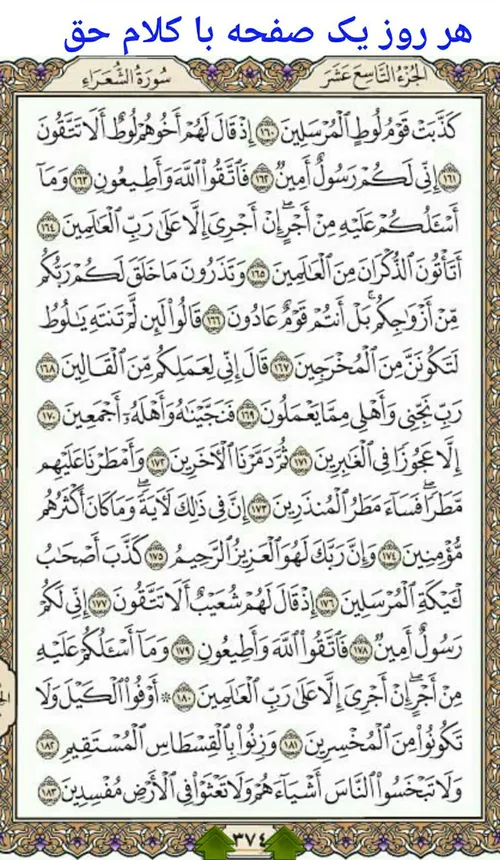 هر روز یک صفحه با کلام حق
الجُزءُ التَّاسِعَ عَشَرَ سُورَةُ الشُّعَرَاءِ
كَذَّبَتْ قَوْمُ لُوطٍ ٱلْمُرْسَلِينَ ١٦٠ إِذْ قَالَ لَهُمْ أَخُوهُمْ لُوطٌ أَلَا تَتَّقُونَ
١٦١ إِنِّى لَكُمْ رَسُولٌ أَمِينٌ ١٦٢ فَٱتَّقُوا۟ ٱللَّهَ وَأَطِيعُونِ ١٦٣ وَمَآ
أَسْـَٔلُكُمْ عَلَيْهِ مِنْ أَجْرٍ ۖ إِنْ أَجْرِىَ إِلَّا عَلَىٰ رَبِّ ٱلْعَـٰلَمِينَ ١٦٤
أَتَأْتُونَ ٱلذُّكْرَانَ مِنَ ٱلْعَـٰلَمِينَ ١٦٥ وَتَذَرُونَ مَا خَلَقَ لَكُمْ رَبُّكُم
مِّنْ أَزْوَٰجِكُم ۚ بَلْ أَنتُمْ قَوْمٌ عَادُونَ ١٦٦ قَالُوا۟ لَئِن لَّمْ تَنتَهِ يَـٰلُوطُ
لَتَكُونَنَّ مِنَ ٱلْمُخْرَجِينَ ١٦٧ قَالَ إِنِّى لِعَمَلِكُم مِّنَ ٱلْقَالِينَ ١٦٨
رَبِّ نَجِّنِى وَأَهْلِى مِمَّا يَعْمَلُونَ ١٦٩ فَنَجَّيْنَـٰهُ وَأَهْلَهُۥٓ أَجْمَعِينَ ١٧٠
إِلَّا عَجُوزًا فِى ٱلْغَـٰبِرِينَ ١٧١ ثُمَّ دَمَّرْنَا ٱلْـَٔاخَرِينَ ١٧٢ وَأَمْطَرْنَا عَلَيْهِم
مَّطَرًا ۖ فَسَآءَ مَطَرُ ٱلْمُنذَرِينَ ١٧٣ إِنَّ فِى ذَٰلِكَ لَـَٔايَةً ۖ وَمَا كَانَ أَكْثَرُهُم
مُّؤْمِنِينَ ١٧٤ وَإِنَّ رَبَّكَ لَهُوَ ٱلْعَزِيزُ ٱلرَّحِيمُ ١٧٥ كَذَّبَ أَصْحَـٰبُ
لْـَٔيْكَةِ ٱلْمُرْسَلِينَ ١٧٦ إِذْ قَالَ لَهُمْ شُعَيْبٌ أَلَا تَتَّقُونَ ١٧٧ إِنِّى لَكُمْ
رَسُولٌ أَمِينٌ ١٧٨ فَٱتَّقُوا۟ ٱللَّهَ وَأَطِيعُونِ ١٧٩ وَمَآ أَسْـَٔلُكُمْ عَلَيْهِ
مِنْ أَجْرٍ ۖ إِنْ أَجْرِىَ إِلَّا عَلَىٰ رَبِّ ٱلْعَـٰلَمِينَ ١٨٠ ۞ أَوْفُوا۟ ٱلْكَيْلَ وَلَا
تَكُونُوا۟ مِنَ ٱلْمُخْسِرِينَ ١٨١ وَزِنُوا۟ بِٱلْقِسْطَاسِ ٱلْمُسْتَقِيمِ ١٨٢
وَلَا تَبْخَسُوا۟ ٱلنَّاسَ أَشْيَآءَهُمْ وَلَا تَعْثَوْا۟ فِى ٱلْأَرْضِ مُفْسِدِينَ ١٨٣
٣٧٤